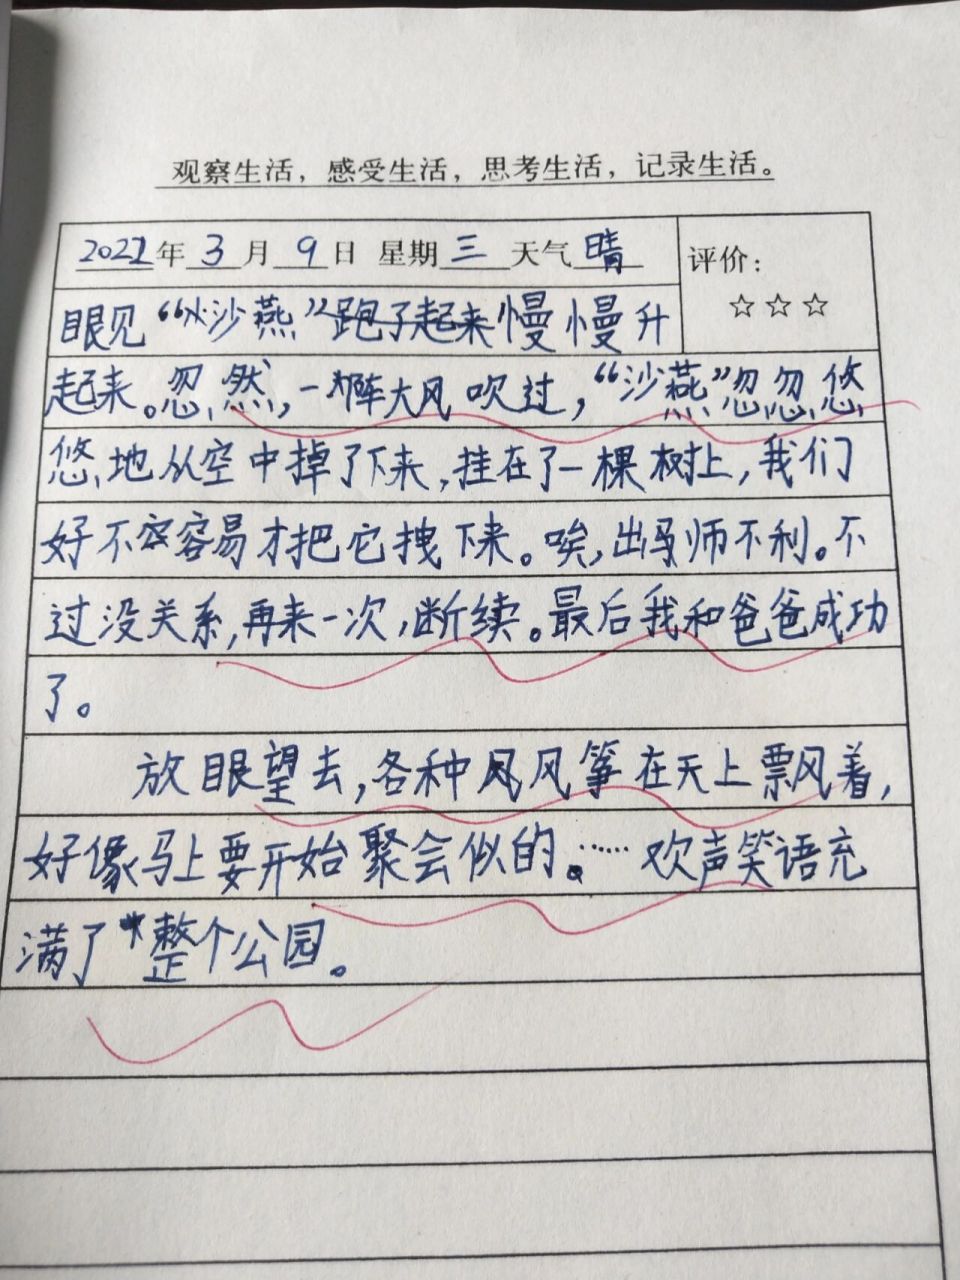 观察生活，感受生活，思考生活，记录生活。
2022年3月9日 星期三 天气 晴
评价：
☆☆☆
眼见“沙燕”跑了起来慢慢升
起来。忽然，一阵大风吹过，“沙燕”忽忽悠
悠地从空中掉了下来，挂在了一棵树上，我们
好不容容易才把它拽下来。唉，出马师不利。不
过没关系，再来一次，断续。最后我和爸爸成功
了。
放眼望去，各种风风筝在天上飘着，
好像马上要开始聚会似的。……欢声笑语充
满了整个公园。